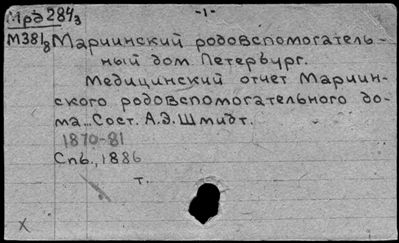 Мрд 284/3
-1-
М381/8 Мариинский родовспомогатель-
ный дом. Петербург.
Медицинский отчет Мариин-
ского родовспомогательного до-
ма... Сост. А.Э. Шмидт.
1870-81
Спб., 1886
т.
X